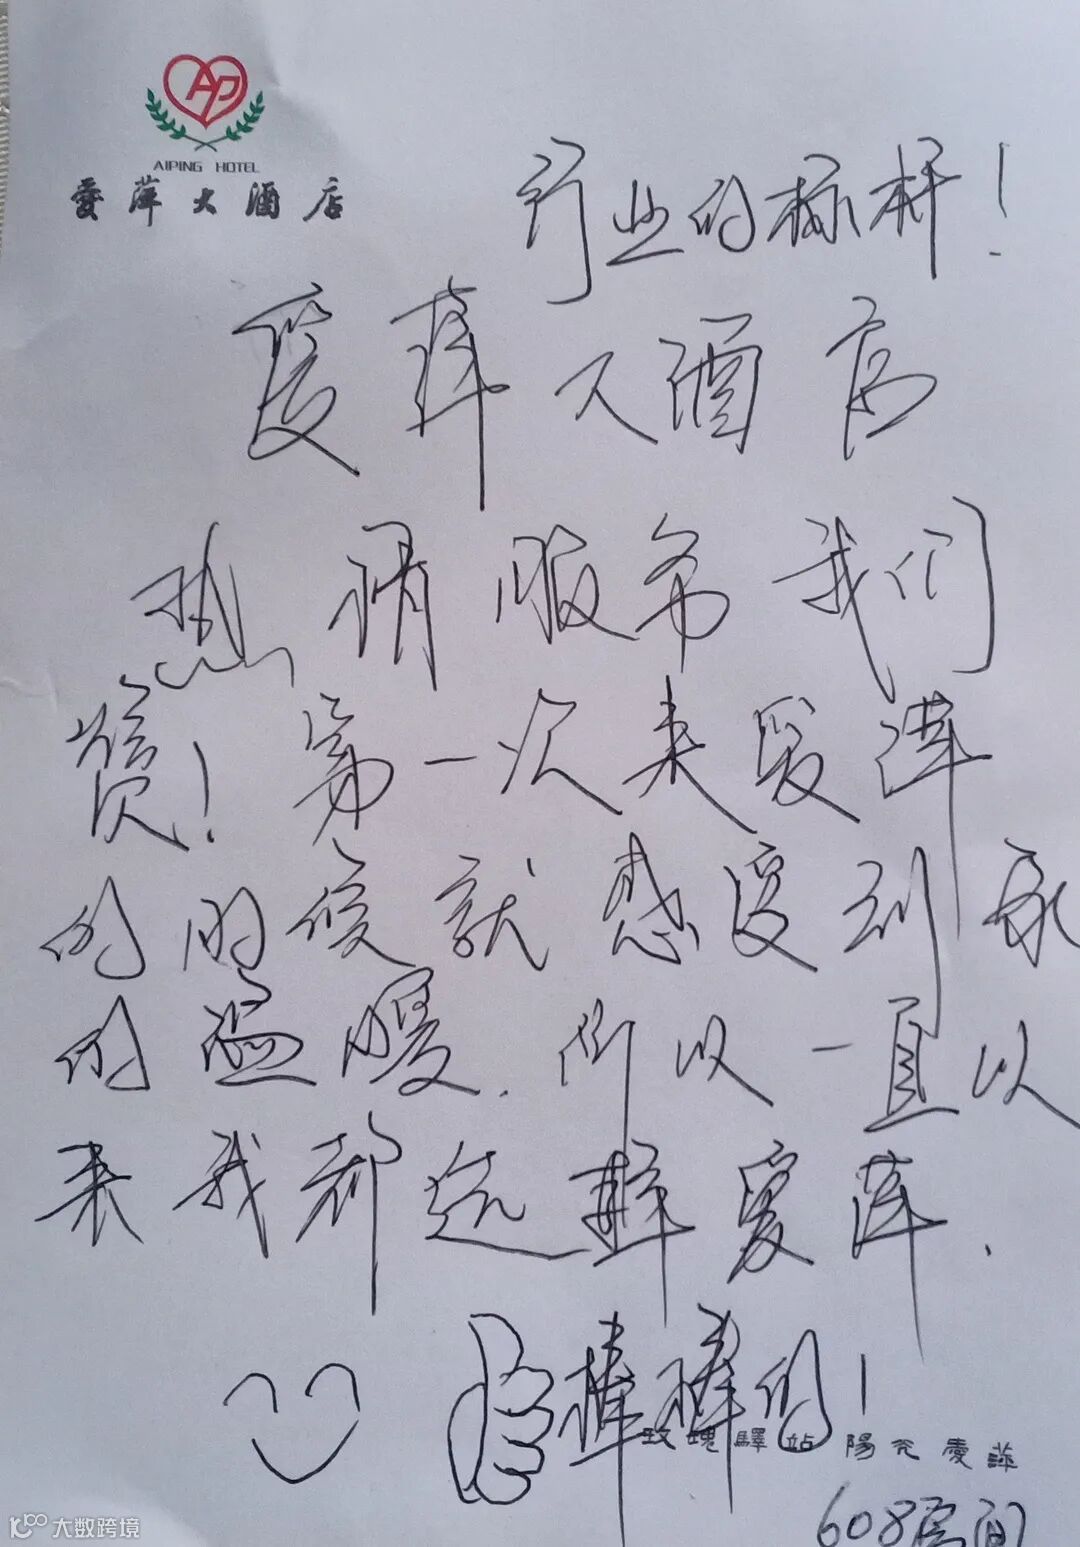 AP
AIPING HOTEL
爱萍大酒店
行业的标杆！
爱萍大酒店
热情服务我们
赞！第一次来爱萍
的时候就感受到家
的温暖.所以一直以
来我都选择爱萍.
棒棒的！
玫瑰驿站 陽光愛萍
608房间
大数跨境